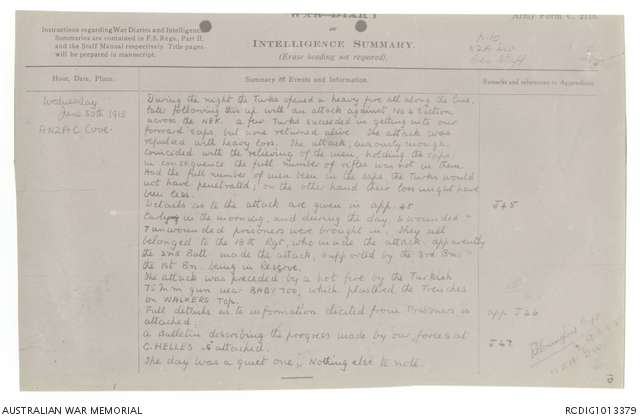 WAR DIARY
Army Form C. 2118.
Instructions regarding War Diaries and Intelligence
Summaries are contained in F.S. Regs., Part II.
and the Staff Manual respectively. Title pages
will be prepared in manuscript.
or
INTELLIGENCE SUMMARY.
(Erase heading not required).
Hour, Date, Place.
Summary of Events and Information.
Remarks and references to Appendices
Wednesday
June 30th 1915
ANZAC Cove.
During the night the Turks opened a heavy fire all along the line,
later following this up with an attack against No 4 Section
across the NEK. A few Turks succeeded in getting into our
forward saps, but none returned alive. The attack was
repulsed with heavy loss. The attack, curiously enough,
coincided with the relieving of the men, holding the saps,
in consequence the full number of rifles was not in them.
Had the full number of men been in the saps the Turks would
not have penetrated; on the other hand their loss might have
been less.
Details as to the attack are given in app. 45
J45
Early in the morning, and during the day, 6 wounded &
7 unwounded prisoners were brought in. They all
belonged to the 18th Rgt, who made the attack, apparently
the 2nd Batt. made the attack, supported by the 3rd Bn
the 1st Bn. being in Reserve.
The attack was preceded by a hot fire by the Turkish
75 m.m gun near BABY 700, which plastered the Trenches
on WALKERS Top.
Full details as to information elicited from Prisoners is
attached.
app J46
A Bulletin describing the progress made by our forces at
C. HELLES is attached.
J47
The day was a quiet one, Nothing else to note.
AUSTRALIAN WAR MEMORIAL
RCDIG1013379